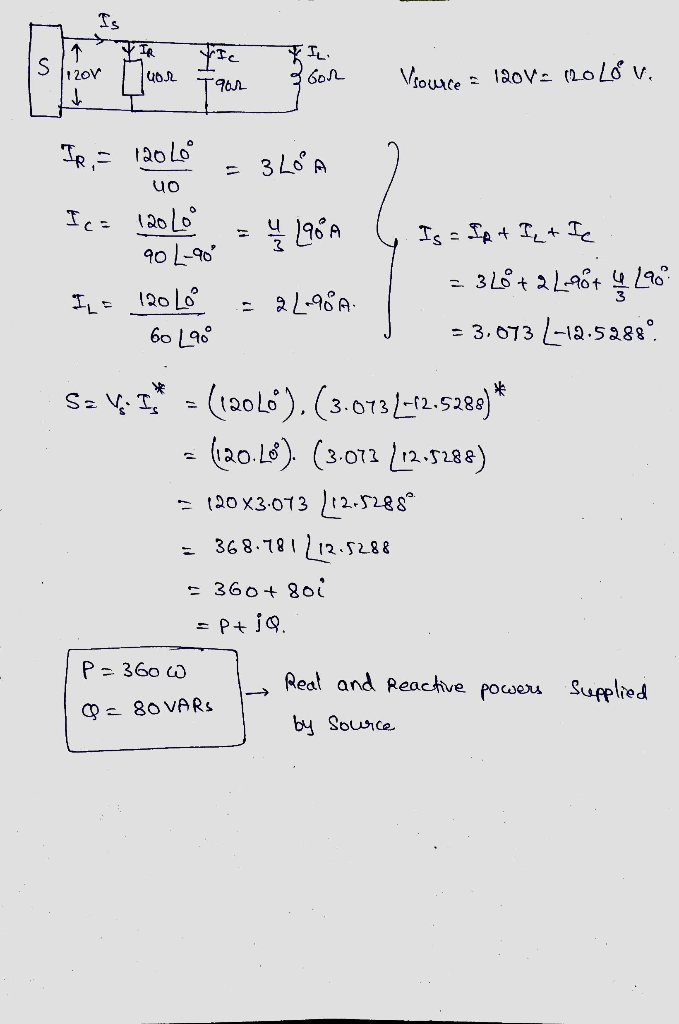 Is
S 120V IR 40Ω Ic 90Ω IL. 60Ω Vsource = 120V = 120∠0° V.
IR, = 120∠0° / 40 = 3∠0° A
Ic = 120∠0° / 90∠-90° = 4/3 ∠90° A
Is = IR + IL + Ic
IL = 120∠0° / 60∠90° = 2∠-90° A.
= 3∠0° + 2∠-90° + 4/3 ∠90°
= 3.073∠-12.5288°.
S = Vs. Is* = (120∠0°). (3.073∠-12.5288)*
= (120.∠0°). (3.073∠12.5288)
= 120 X 3.073∠12.5288°
= 368.781∠12.5288
= 360 + 80i
= P + jQ.
P = 360 W
Q = 80 VARs
→ Real and Reactive powers Supplied
by Source